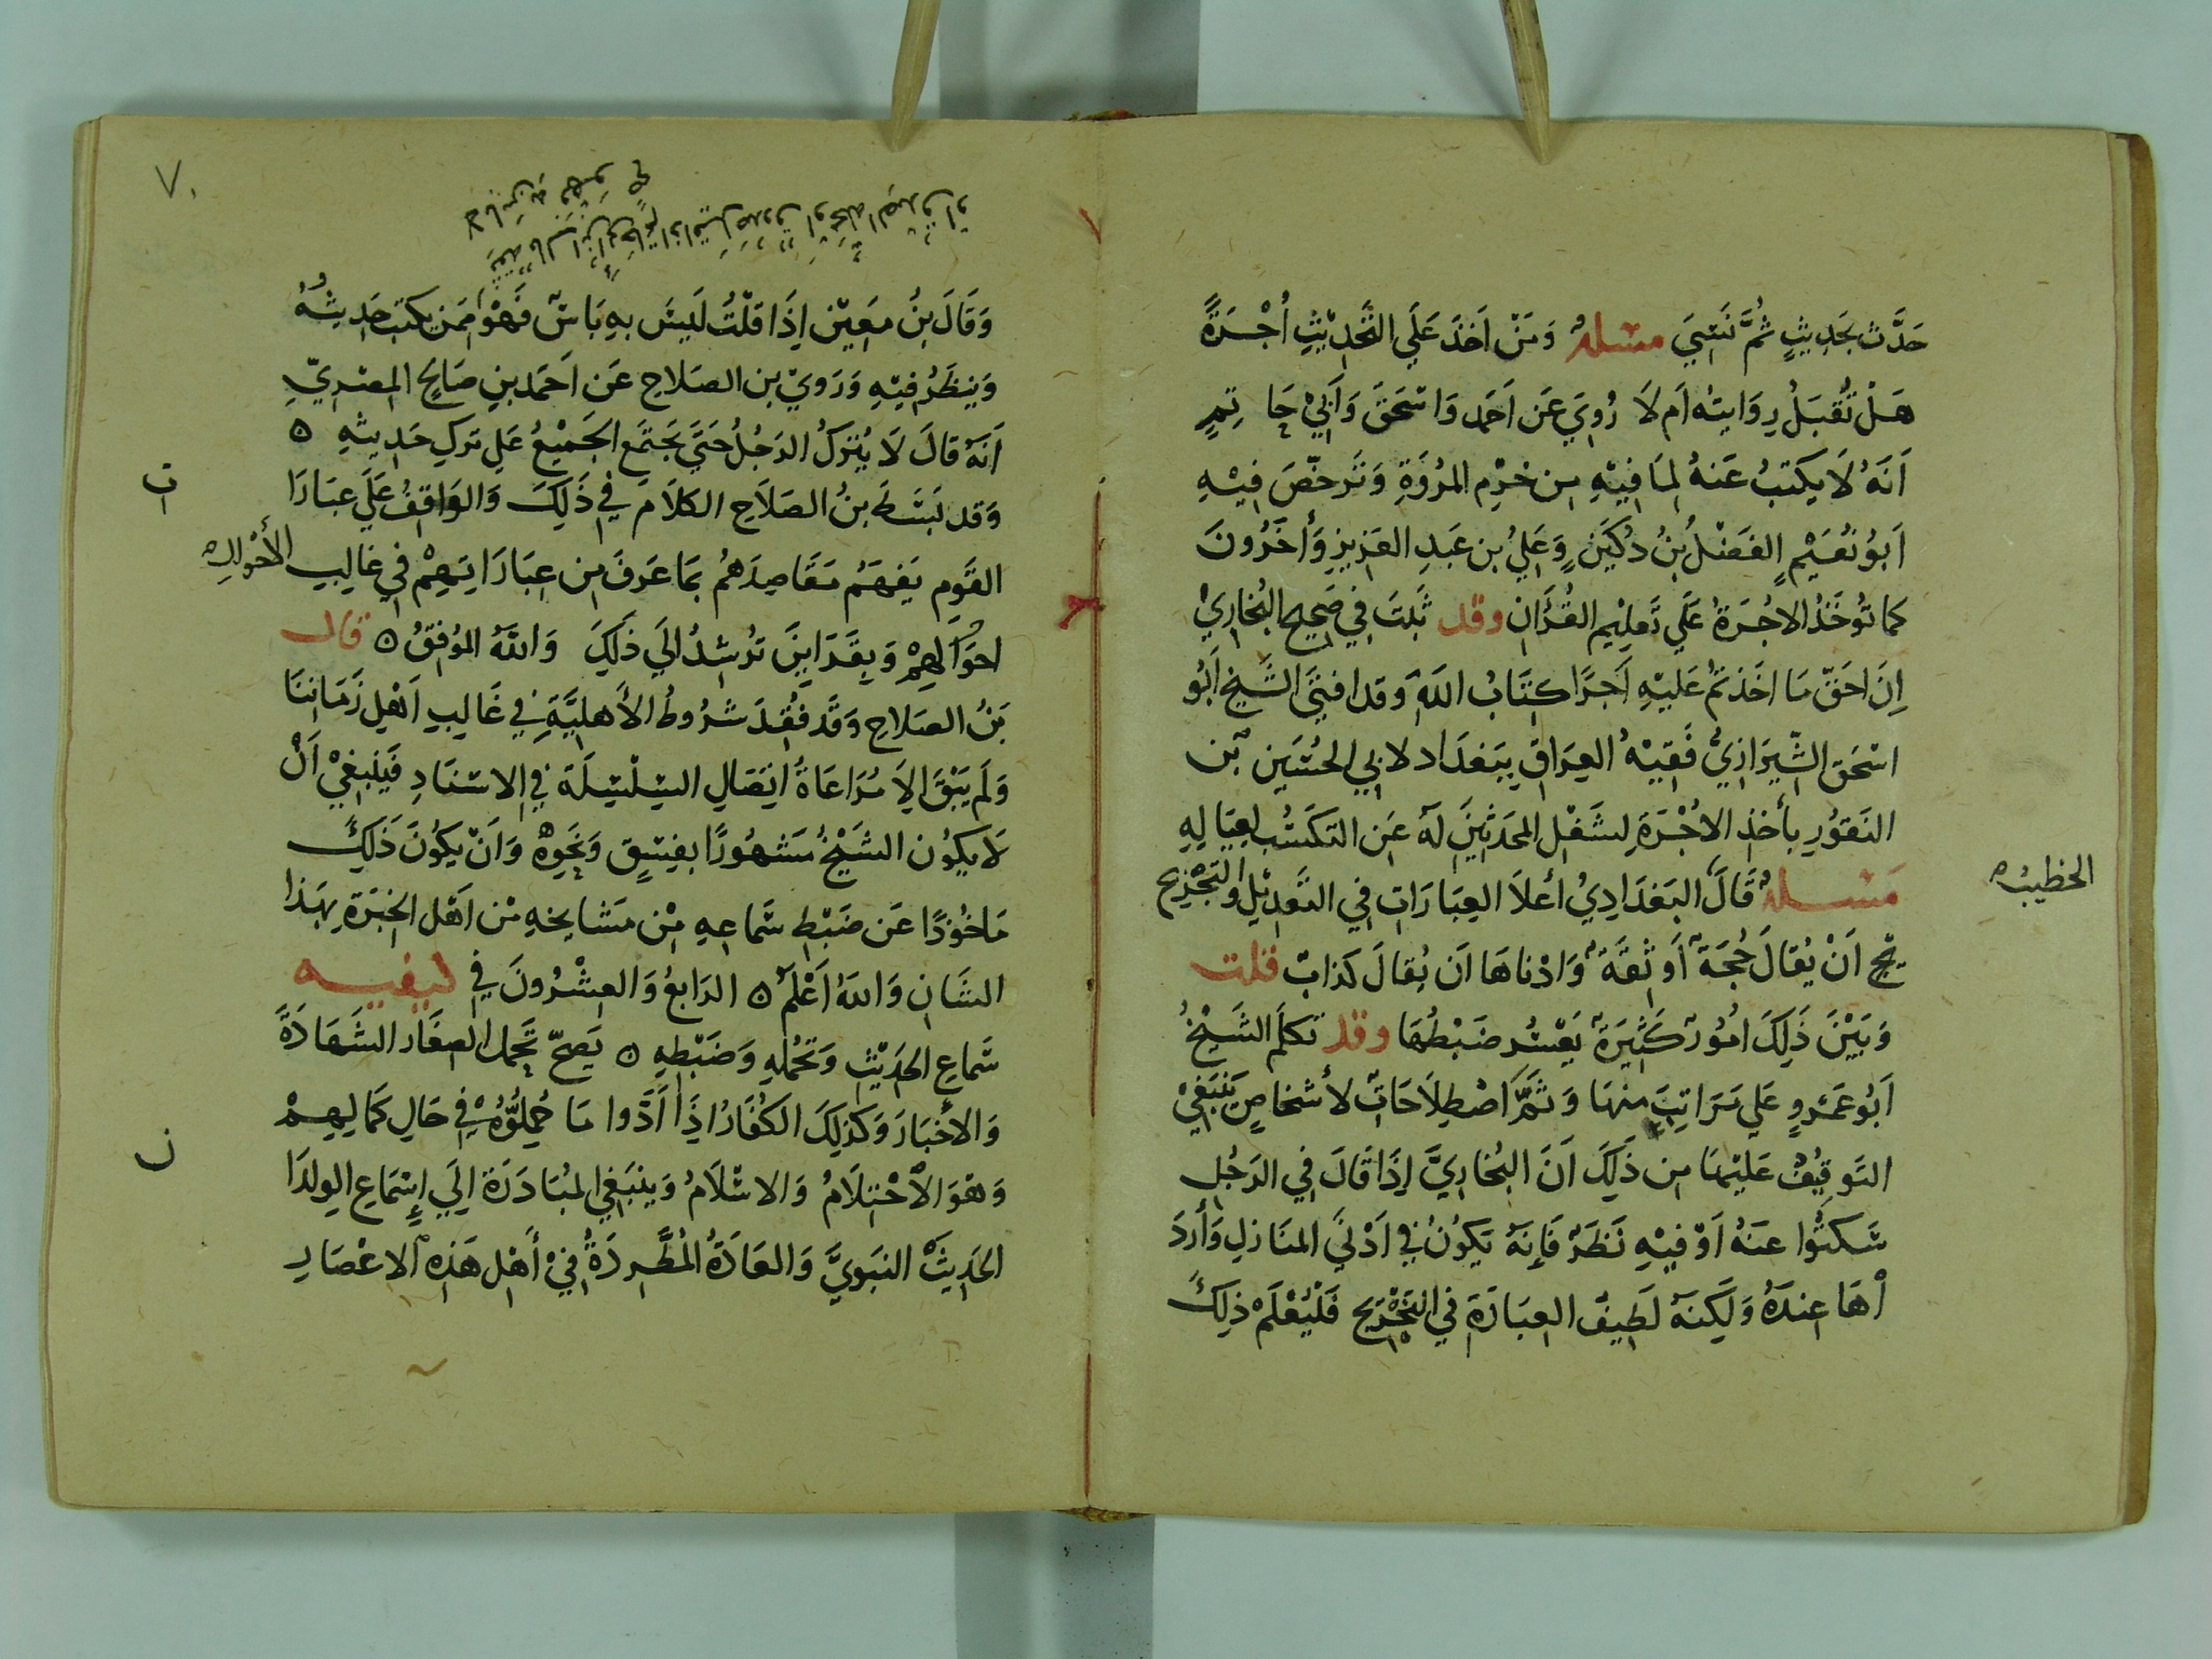 حَدَّث بحَدِيثٍ ثُمَّ نَسِيَ مسئلة وَمَنْ اَخذَ عَلَي التَّحْدِيْثِ اُجْرَةً
هَلْ تُقبَلُ رِوَايته اَم لَا رُوِيَ عَن اَحمد وَاسْحَقَ وَاَبِيْ حَا تِمٍ
اَنَهُ لَا يكتبُ عَنهُ لمَا فِيْهِ مِن خرْمِ المرُؤَةِ وَتَرخّصَ فِيْهِ
اَبوُ نُعَيْمٍ الفَضْلُ بنُ دُكَيَنٍ وَعَليُ بن عَبدِ العَزِيزِ وَأخَرُونَ
كما تُوخَذُ الاجُرَةُ عَلَي تَعلِيْمِ القُرْاَن وقد ثَبتَ فِي صَحِيح البُخَاريْ
اِنَ احَقّ مَا اخَذتمْ عَليْهِ اَجرًا كتَابُ اللَهِ وقد افتيَ الشَيخ اَبُو
اسْحَق الشّيرَازِيُّ فَقيْهُ العِرَاقِ بِبَغدَاد لابي الحُسَين بن
النَقوُرِ بأخذِ الاجُرَةِ لشغلِ المحَدثِينَ لهُ عَن التكسُّب لِعيَالِهِ
مَسئلة قَالَ البَغدَادِيُ أعلاَ العِبَارَاتِ فِي التَّعدِيْلِ وَالتَجْرِيحِ
الخطيب
يْح اَنْ يُقَالَ حُجَة اَو ثِقَة وَادْناهَا اَن يُقالَ كَذابٌ قلت
وَبَيْنَ ذَلِكَ امُوُر كَثِيرَة يَعْسُر ضَبْطُهَا وقد تكلَم الشَيْخُ
اَبُو عَمْروٍ عَلي مَرَاتِبَ مِنْهَا وَثَمَّ اصْطِلاَحَاتٌ لأشخاصٍ يَنْبَغِيْ
التَوقيُف عَليْهَا مِن ذَلِكَ اَنَ البُخارِيَّ إذَا قَالَ فِي الرَجُلِ
سَكتُوا عَنهُ اَوْ فِيْهِ نَظَرٌ فَإِنهُ يَكوُنُ فِي اَدْنَي المنَازلِ وَأرْدَ
اْهَا عِندَهُ وَلَكِنَهُ لَطِيفُ العِبَارَةِ فِي التَجْرِيْح فَلْيُعْلَمْ ذلِكَ
٧٠
وَقَالَ بنُ مَعِيْن إذَا قلْتُ لَيسَ بهِ بَاسٌ فَهوْ ممَن يكتبُ حَدِيثهُ
وَيَنظَرُ فِيْهِ وَرَوَيْ بن الصَلاحِ عَن اَحَمَد بنِ صَالحٍ المصْرِيّ
اَنهُ قالَ لَا يُترَكُ الرَجُلُ حَتَيَ يجتَمَع الجَمِيْعُ عَلي تَركِ حَدِيثهِ ٥
وَقد بَسَط بنُ الصَلاَح الكلاَمَ فِي ذَلِكَ وَالوَاقِفُ عَلَي عبَارَا
ت
القَومِ يَفهَمُ مَقَاصِدَهُم بمَا عَرَفَ مِن عِبَارَاتِهِمْ فِي غَالِبِ الأَحْوَال
احوَالِهِمْ وَبِقَرَاينَ تُرشِدُ الي ذلِكَ وَاللَهُ المُوَفِقُ ٥ قال
بْنُ الصَلاحِ وَقَد فقِدَ شرُوطُ الأَهليَّةِ فِي غَالِبِ اَهْلِ زَمَاننَا
وَلَم يَبْقَ الاَ مُرَاعَاةُ اتِصَالِ السّلْسلَة فِي الاسْنَادِ فَيَنبغِيْ اَنْ
لَا يكوُن الشَيْخُ مَشهُورًا بِفسْقٍ وَنَحْوهِ وَاَنْ يكوُنَ ذَلِكَ
مَاخُوْذًا عَن ضَبْطِ سَمَاعِهِ مِنْ مَشَايخهِ مِن اَهْلِ الخِبْرَةِ بِهَذا
الشَانِ وَاللهُ اَعْلَمْ ٥ الرَابعُ وَالعِشْرُونَ فِي كيفيه
سَماعِ الحَدِيْثِ وَتحُمّلِهِ وَضَبْطِهِ ٥ يَصحّ تَحمل الصِغَار الشَهَادَةَ
وَالأخْبَارَ وَكذلِكَ الكُفَارُ اذَا اَدَّوا مَا حَمِلُوْهُ فِي حَالِ كَمَالِهِمْ
وَهْوَ الاْحْتِلَامُ وَالاسْلَامُ وَينبَغِي المُبَادَرَة إلَي إِسْمَاعِ الوِلدَا
ن
الحَدِيثَ النبَويَّ وَالعَادَةُ المُطَّرِدَةُ فِيْ أهْلِ هَذِهِ الاعْصَارِ